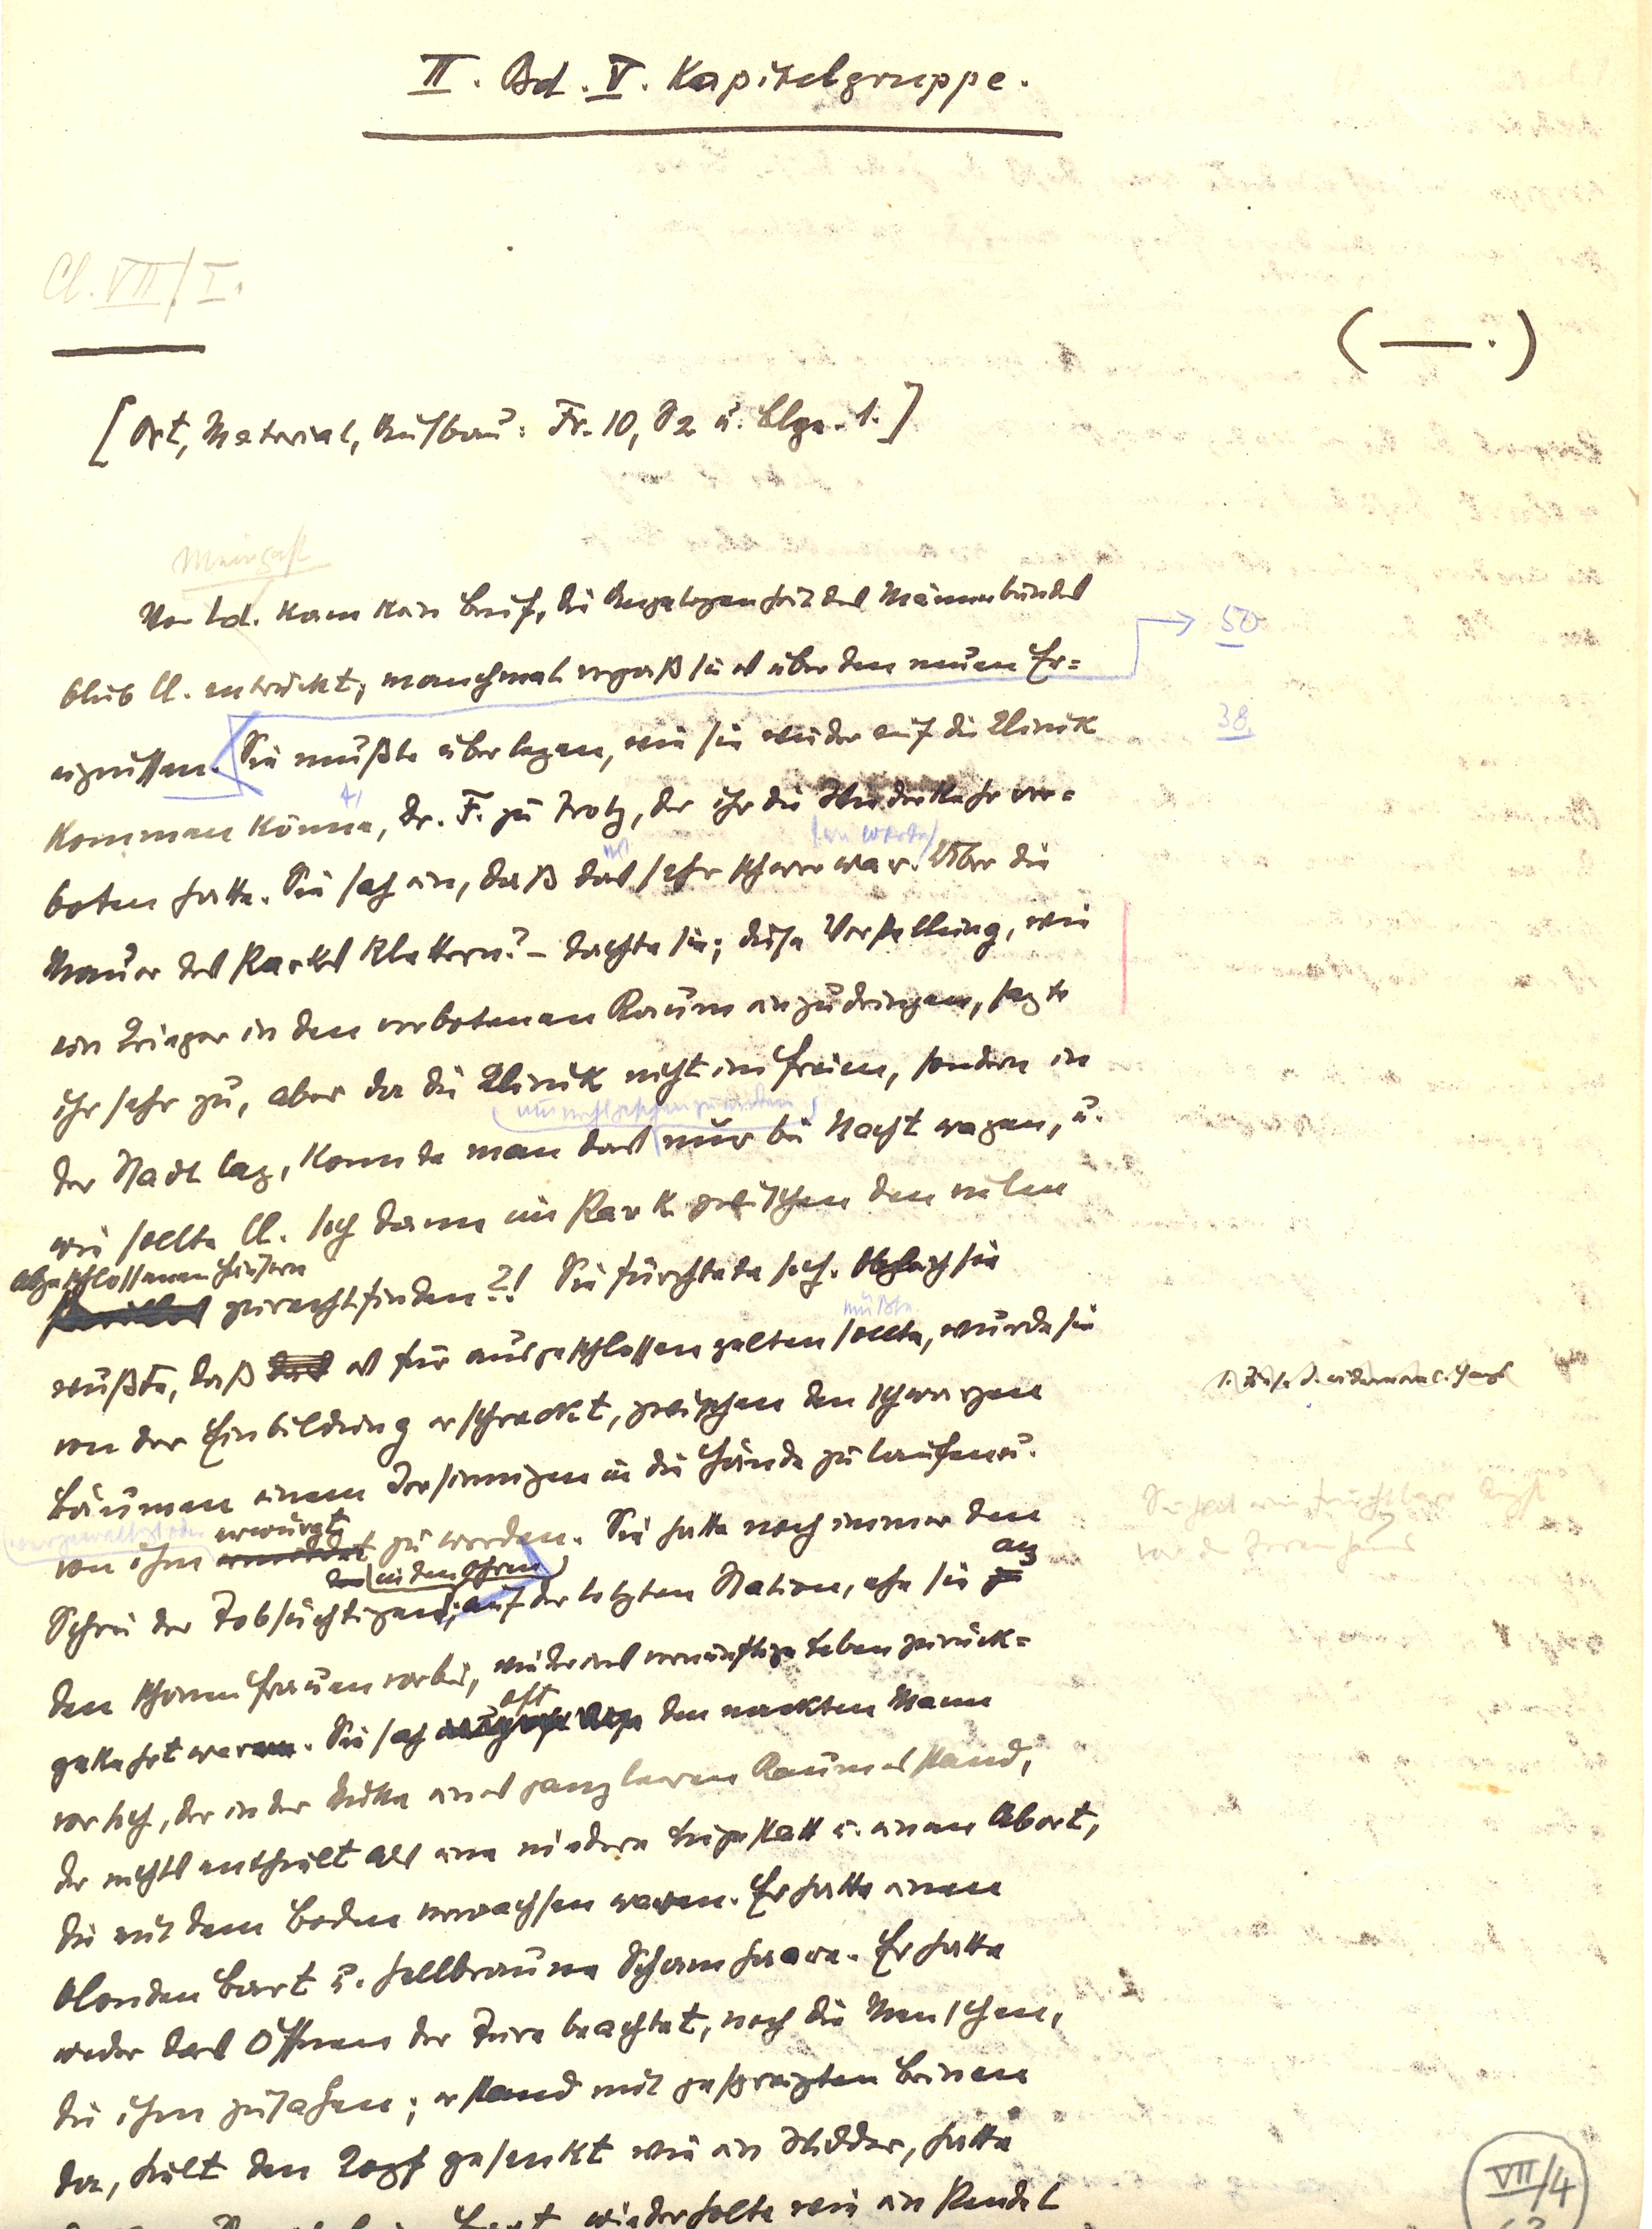 II. Bd. V. Kapitelgruppe.
Cl. VII/I.
(—.)
[Ort, Material, Aufbau: Fr. 10, S 2 u. Blge. 1.]
Meingast
Von Ld. kam kein Brief, die Angelegenheit des Männerbundes
50
blieb Cl. entrückt; manchmal vergaß sie es über den neuen Er=
38
eignissen. Sie mußte überlegen, wie sie wieder auf die Klinik
kommen könne, Dr. F. zu Trotz, der ihr die Wiederkehr ver=
sein werde
boten hatte. Sie sah ein, daß das sehr schwer war. Über die
Mauer des Parkes klettern? – dachte sie; diese Vorstellung, wie
ein Krieger in den verbotenen Raum einzudringen, sagte
ihr sehr zu, aber da die Klinik nicht im Freien, sondern in
um nicht gesehen zu werden
der Stadt lag, konnte man das nur bei Nacht wagen, u.
wie sollte Cl. sich dann im Park zwischen den vielen
abgeschlossenen Häusern
zurechtfinden?! Sie fürchtete sich. Obgleich sie
müßte
wußte, daß das es für ausgeschlossen gelten sollte, wurde sie
von der Einbildung erschreckt, zwischen den schwarzen
Bäumen einem Irrsinnigen in die Hände zu laufen u.
vergewaltigt oder erwürgt
von ihm ermordet zu werden. Sie hatte noch immer den
in den Ohren an
Schrei der Tobsüchtigen; auf der letzten Station, ehe sie
den schönen Frauen vorbei, wieder ins vernünftige Leben zurück=
oft
gekehrt waren. Sie sah den nackten Mann
vor sich, der in der Mitte eines ganz leeren Raumes stand,
der nichts enthielt als eine niedere Liegestatt u. einen Abort,
die mit dem Boden verwachsen waren. Er hatte einen
blonden Bart u. hellbraune Schamhaare. Er hatte
weder das Öffnen der Türe beachtet, noch die Menschen,
die ihm zusahen; er stand mit gespreizten Beinen
da, hielt den Kopf gesenkt wie ein Widder, hatte
wiederholte wie ein Pendel
Sie hat eine furchtbare Angst
vor dem Irrenhaus
VII/4